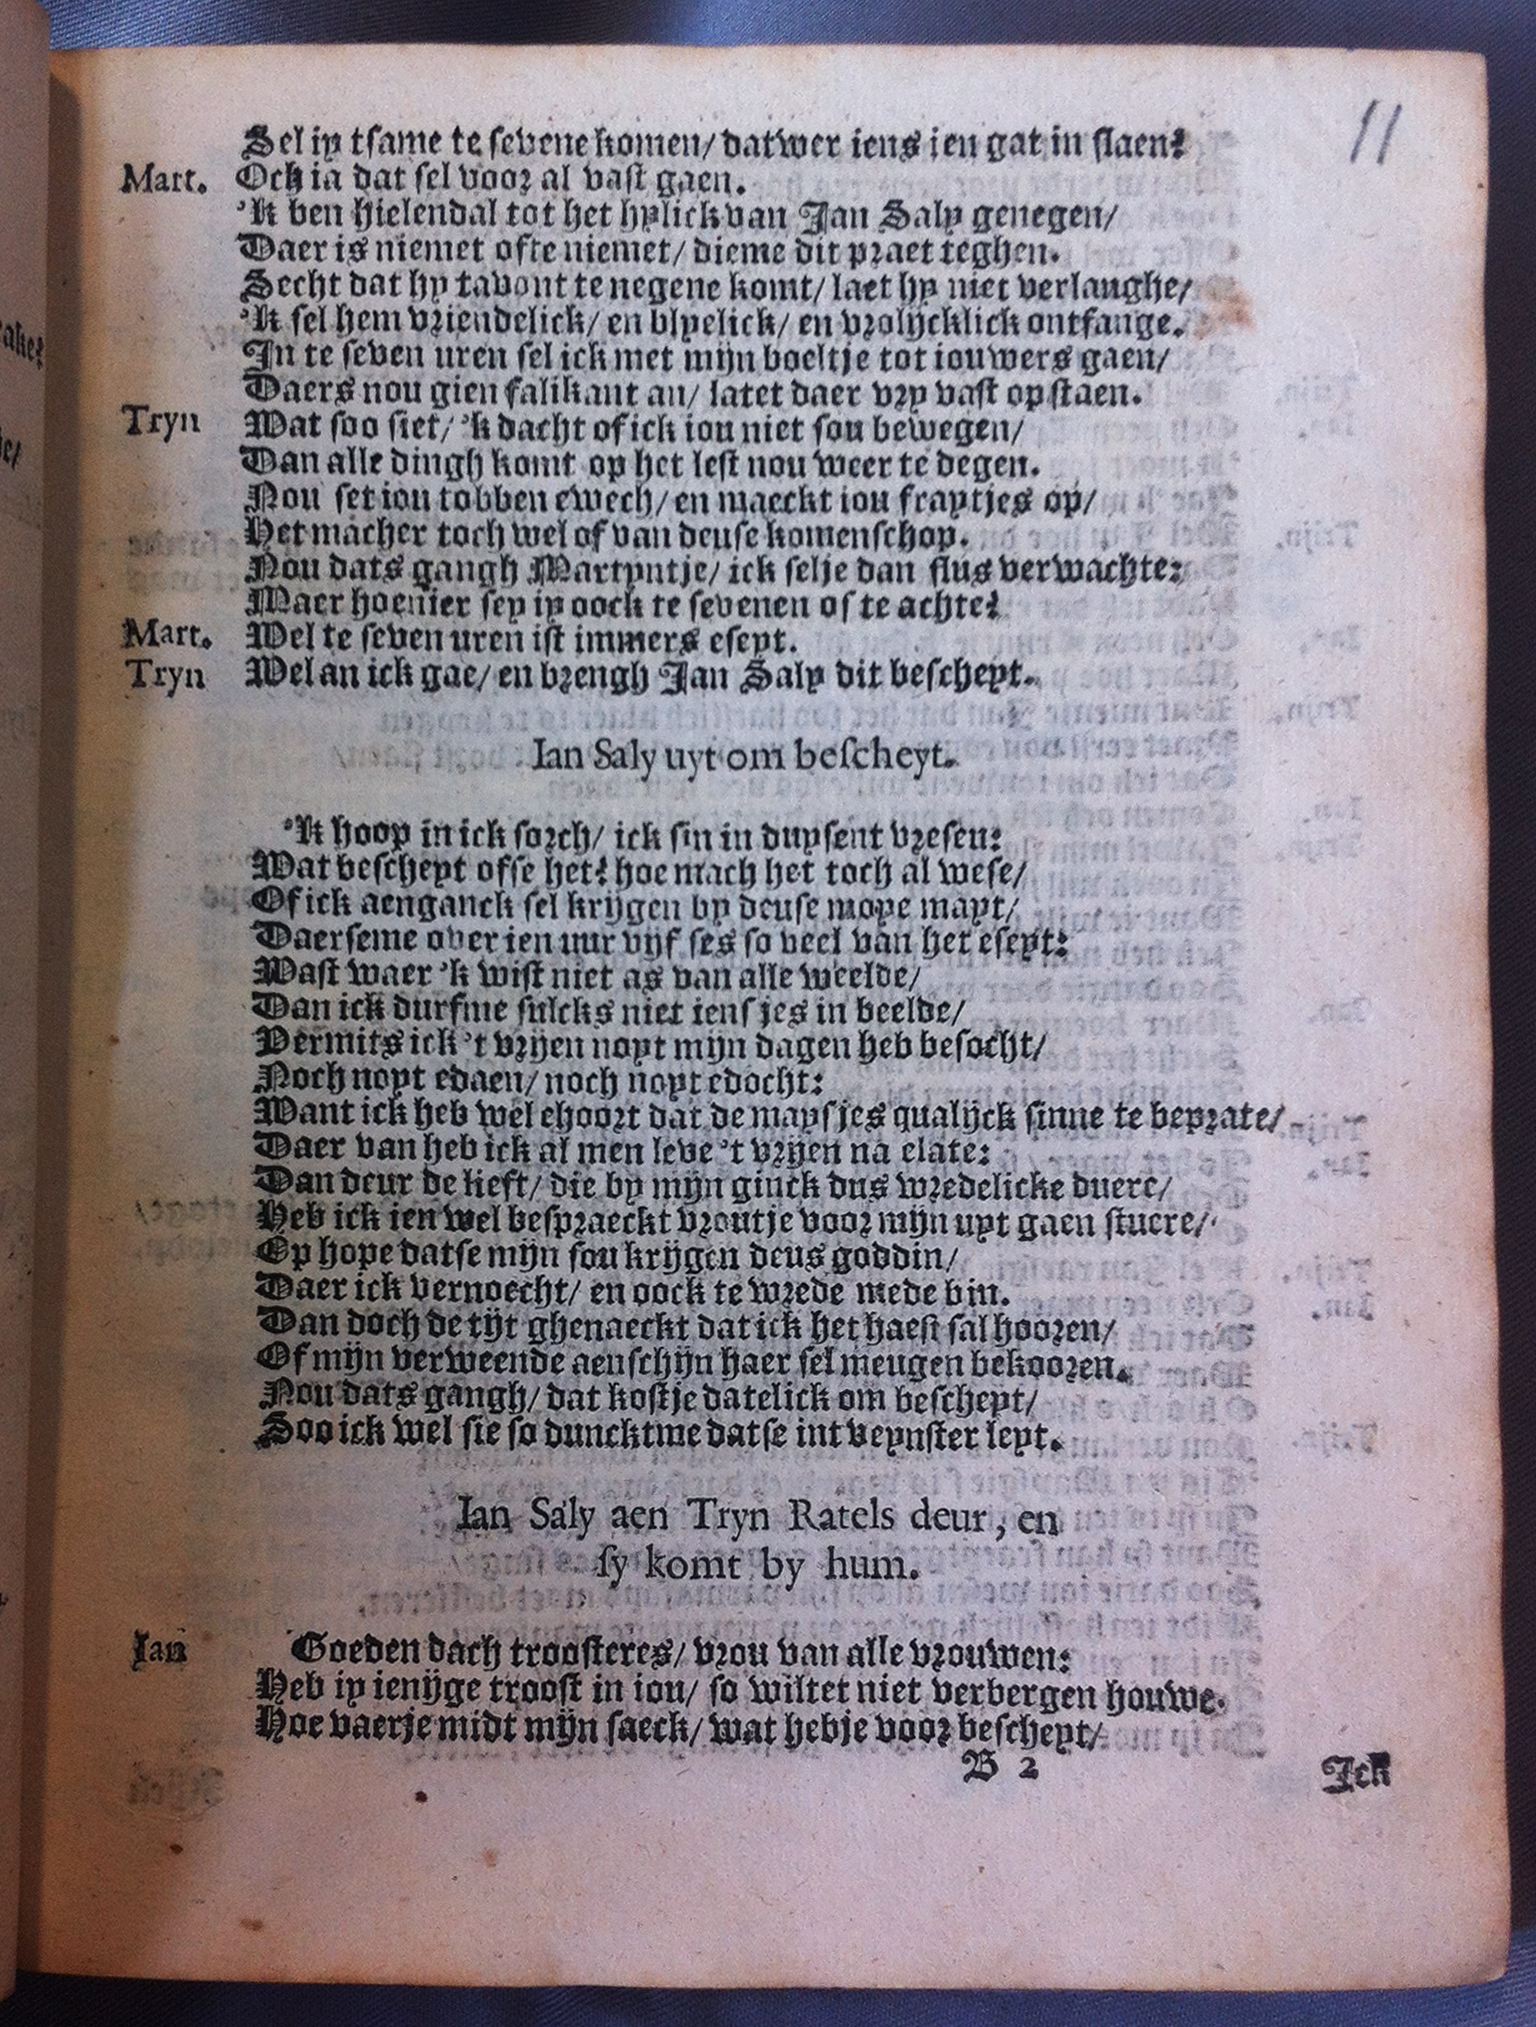 11
Sel jy tsame te sevene komen/ datwer iens ien gat in slaen?
Mart. Och ia dat sel voor al vast gaen.
'k ben hielendal tot het hylick van Jan Saly genegen/
Daer is niemet ofte niemet/ dieme dit praet teghen.
Secht dat hy tavont te negene komt/ laet hy niet verlanghe/
'k sel hem vriendelick/ en blyelick/ en vrolijcklick ontfange.
In te seven uren sel ick met mijn boeltje tot iouwers gaen/
Daers nou gien falikant an/ latet daer vry vast op staen.
Tryn Wat soo siet/ 'k dacht of ick iou niet sou bewegen/
Dan alle dingh komt op het lest nou weer te degen.
Nou set iou tobben ewech/ en maeckt iou fraytjes op/
Het macher toch wel of van deuse komenschop.
Nou dats gangh Martyntje/ ick selje dan flus verwachte:
Maer hoenier sey jy oock te sevenen of te achte?
Mart. Wel te seven uren ist immers eseyt.
Tryn Wel an ick gae/ en brengh Jan Saly dit bescheyt.
Ian Saly uyt om bescheyt.
'k hoop in ick sorch/ ick sin in duysent vresen:
Wat bescheyt ofse het? hoe mach het toch al wese/
Of ick aenganck sel krijgen by deuse moye mayt/
Daerseme over ien uur vijf ses so veel van het eseyt:
Wast waer 'k wist niet as van alle weelde/
Dan ick durfme sulcks niet iensjes in beelde/
Vermits ick 't vrijen noyt mijn dagen heb besocht/
Noch noyt edaen/ noch noyt edocht:
Want ick heb wel ehoort dat de maysjes qualijck sinne te beprate/
Daer van heb ick al men leve 't vrijen na elate:
Dan deur de lieft/ die by mijn ginck dus wredelicke duere/
Heb ick ien wel bespraeckt vroutje voor mijn uyt gaen stuere/
Op hope datse mijn sou krijgen deus goddin/
Daer ick vernoecht/ en oock te wrede mede bin.
Dan doch de tijt ghenaeckt dat ick het haest sal hooren/
Of mijn verweende aenschijn haer sel meugen bekooren.
Nou dats gangh/ dat kostje datelick om bescheyt/
Soo ick wel sie so duncktme datse int veynster leyt.
Ian Saly aen Tryn Ratels deur, en
sy komt by hum.
Ian Goeden dach troosteres/ vrou van alle vrouwen:
Heb jy ienijge troost in iou/ so wiltet niet verbergen houwe.
Hoe vaerje midt mijn saeck/ wat hebje voor bescheyt/
B 2 Ick